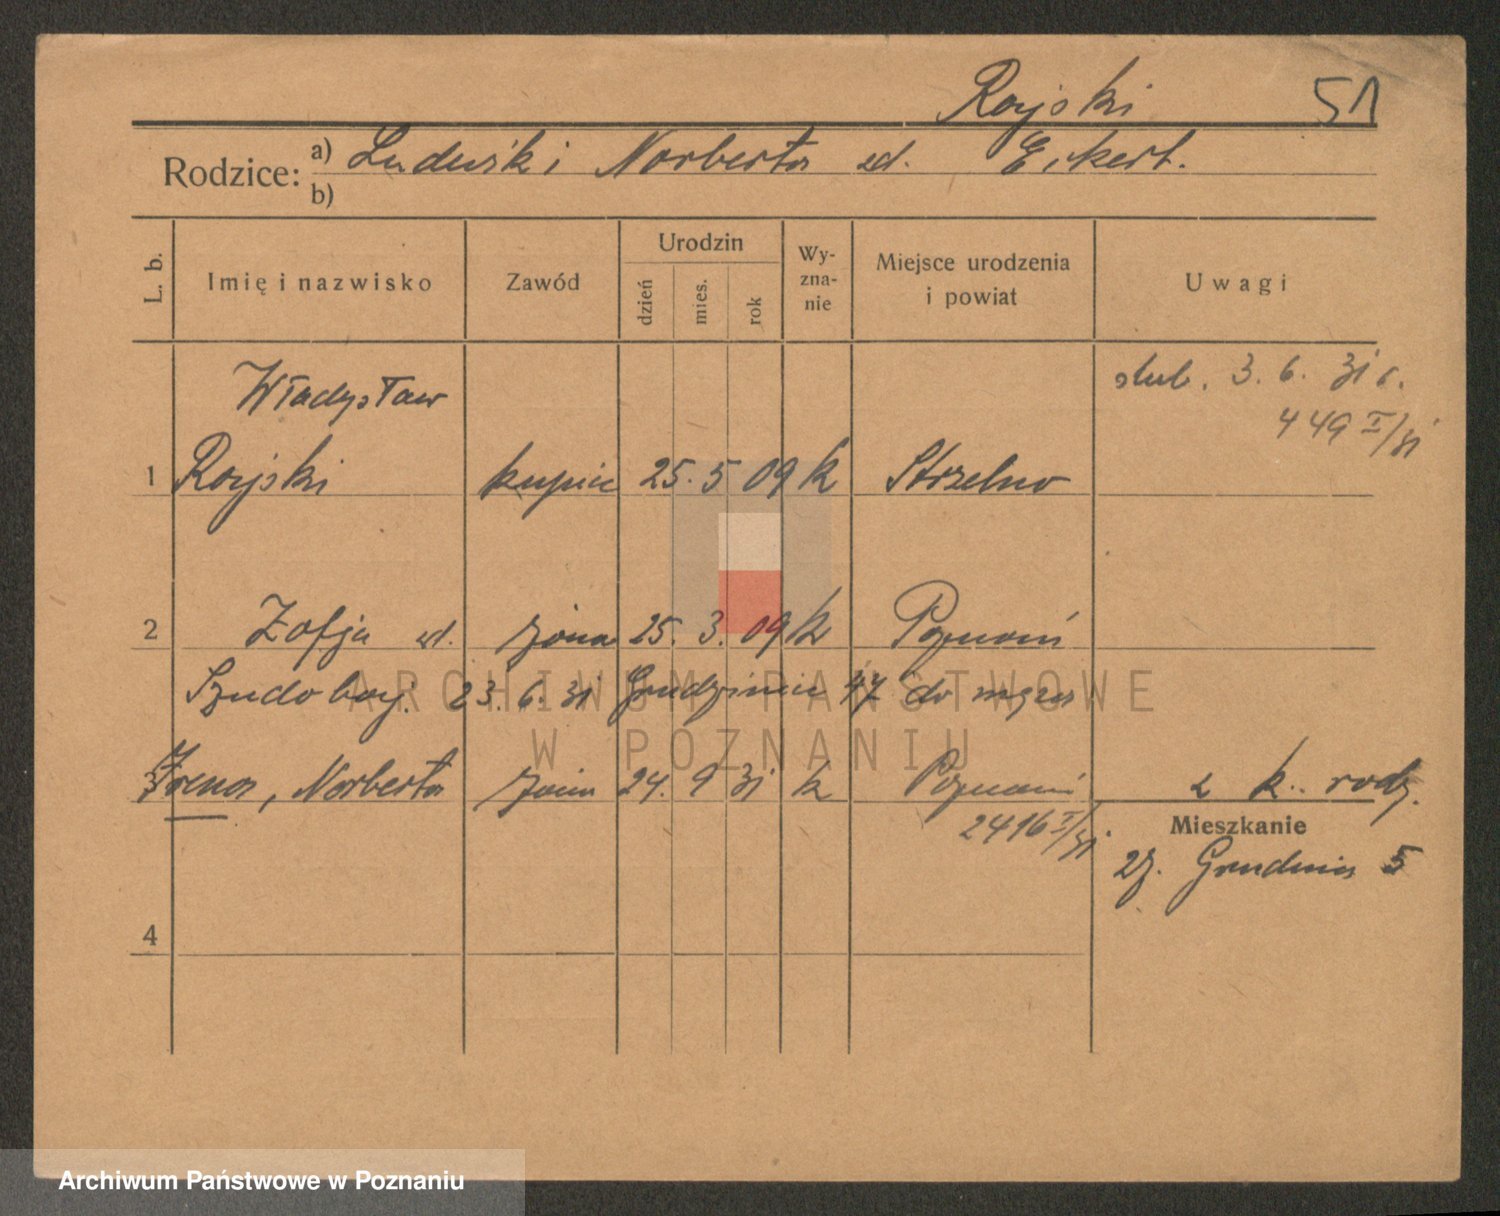 Royski 51
Rodzice: a) Ludwik i Norberta zd. Eckert.
b)
L. b. Imię i nazwisko Zawód Urodzin dzień mies. rok Wy-zna-nie Miejsce urodzenia i powiat Uwagi
Władysław ślub. 3. 6. 31 r.
449 I/31
1 Royski kupiec 25. 5 09 k Strzelno
2 Zofja zd. żona 25. 3. 09 k Poznań
23. 6. 31 47 do męża
3 Irena, Norberta 24. 9 31 k Poznań z k. rodz.
2416 I/31 Mieszkanie
27. Grudnia 5
4
ARCHIWUM PAŃSTWOWE
W POZNANIU
Archiwum Państwowe w Poznaniu